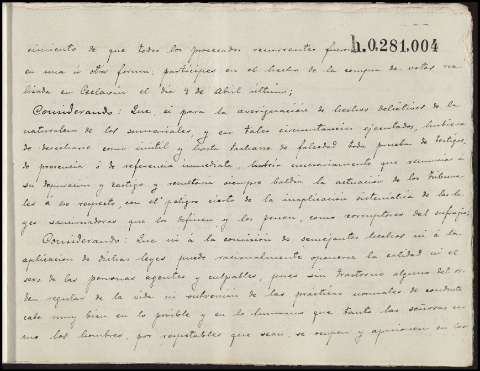 h.0.281,004
cimiento de que todos los procesados recurrentes fueron
en una ú otra forma, partícipes en el hecho de la compra de votos rea-
lizada en Ceclavin el día 9 de Abril último;
Considerando: Que, si para la averiguación de hechos delictivos de la
naturaleza de los sumariales, y en tales circunstancias ejecutados, hubiera
de desecharse como inútil y hasta tachano de falsedad toda prueba de testigos,
de presencia ó de referencia inmediata, habría necesariamente que renunciar á
su depuración y castigo y resultaría siempre baldía la actuación de los Tribuna-
les á ese respecto, con el peligro cierto de la inaplicación sistemática de las le-
yes sancionadoras que los definen y los penan, como corruptores del sufragio;
Considerando: Que ni á la comisión de semejantes hechos ni á la
aplicación de dichas leyes puede racionalmente oponerse la calidad ni el
sexo de las personas agentes y culpables, pues sin trastorno alguno del or-
den regular de la vida ni subversión de las prácticas normales de conducta
cabe muy bien en lo posible y en lo humano que tanto las señoras co-
mo los hombres, por respetables que sean, se ocupen y apasionen en las